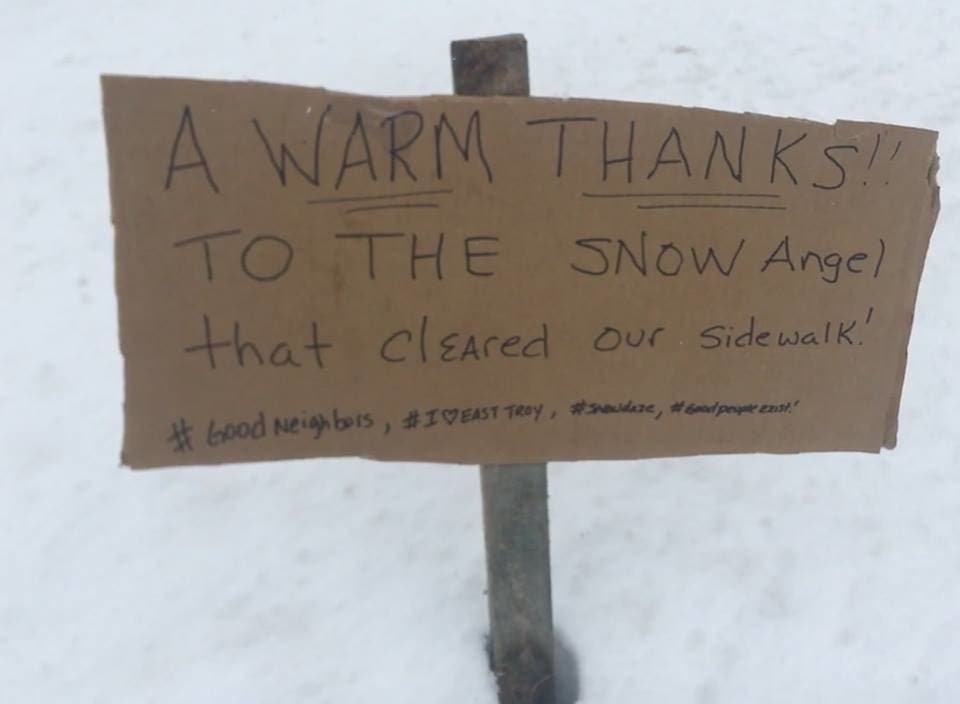 A WARM THANKS!!
TO THE SNOW Angel
that clEAred our sidewalk!
# Good Neighbors, #I♡EAST TROY, #Snowdaze, #Goodpeople exist!